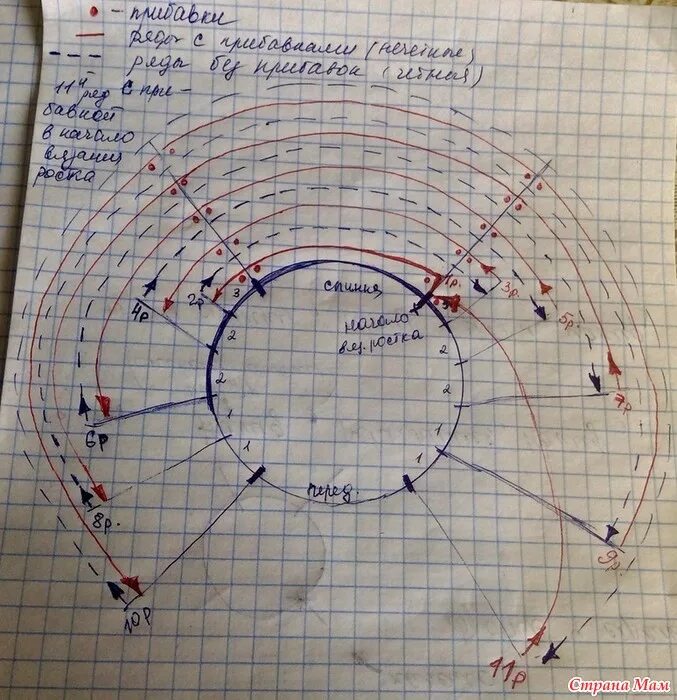 • - прибавки
— ряды с прибавками (нечетные)
--- ряды без прибавок (четная)
11й ряд с при-
бавкой
в начало
вязания
ростка
спинка
начало
вяз. ростка
перед.
1р.
2р
3р.
4р
5р.
6р
7р
8р.
9р.
10р
11р
3
2
2
1
1
3
2
2
1
1
Страна Мам